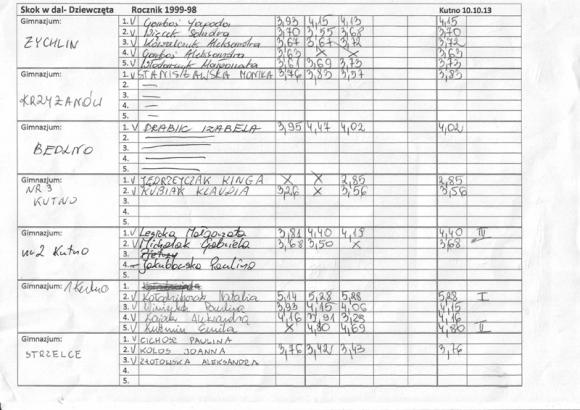 Skok w dal- Dziewczęta Rocznik 1999-98 Kutno 10.10.13
Gimnazjum: 1. V 3,93 4,15 4,13 4,15
ŻYCHLIN 2. V 3,70 3,55 3,68 3,70
3. V Kowalczuk Aleksandra 3,67 3,67 3,72 3,72
4. V Aleksandra 3,63 X X 3,63
5. V Małgorzata 3,61 3,69 3,73 3,73
Gimnazjum: 1. V STANISŁAWSKA MONIKA 3,76 3,83 3,57 3,83
KRZYŻANÓW 2. —
3. —
4. —
5.
Gimnazjum: 1. V DRABIK IZABELA 3,95 4,47 4,02 4,02
BEDLNO 2.
3.
4.
5.
Gimnazjum: 1. V JĘDRZEJCZAK KINGA X X 2,85 2,85
NR 3 2. V KUBIAK KLAUDIA 3,26 X 3,56 3,56
KUTNO 3.
4.
5.
Gimnazjum: 1. V Legięcka Małgorzata 3,81 4,40 4,19 4,40 III
nr 2 Kutno 2. V Michalak Gabriela 3,68 3,50 X 3,68
3.
4. Jakubowska Paulina
5.
Gimnazjum: 1 Kutno 1.
2. V Natalia 5,14 5,28 5,28 5,28 I
3. V Paulina 3,93 4,15 4,06 4,15
4. V Aleksandra 4,16 3,91 3,28 4,16
5. V Kuźmin Emilia X 4,80 4,69 4,80 II
Gimnazjum: 1. V CICHOSZ PAULINA
STRZELCE 2. V KOLOS JOANNA 3,76 3,42 3,43 3,76
3. V ZŁOTOWSKA ALEKSANDRA
4.
5.